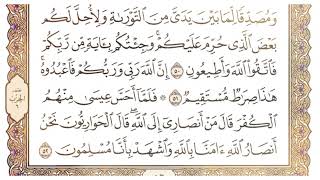 وَمُصَدِّقًا لِّمَا بَيْنَ يَدَىَّ مِنَ ٱلتَّوْرَىٰةِ وَلِأُحِلَّ لَكُم
بَعْضَ ٱلَّذِى حُرِّمَ عَلَيْكُمْ ۚ وَجِئْتُكُم بِـَٔايَةٍ مِّن رَّبِّكُمْ
فَٱتَّقُوا۟ ٱللَّهَ وَأَطِيعُونِ ۝٥٠ إِنَّ ٱللَّهَ رَبِّى وَرَبُّكُمْ فَٱعْبُدُوهُ ۗ
هَـٰذَا صِرَٰطٌ مُّسْتَقِيمٌ ۝٥١ ۞ فَلَمَّآ أَحَسَّ عِيسَىٰ مِنْهُمُ
ٱلْكُفْرَ قَالَ مَنْ أَنصَارِىٓ إِلَى ٱللَّهِ ۖ قَالَ ٱلْحَوَارِيُّونَ نَحْنُ
أَنصَارُ ٱللَّهِ ءَامَنَّا بِٱللَّهِ وَٱشْهَدْ بِأَنَّا مُسْلِمُونَ ۝٥٢